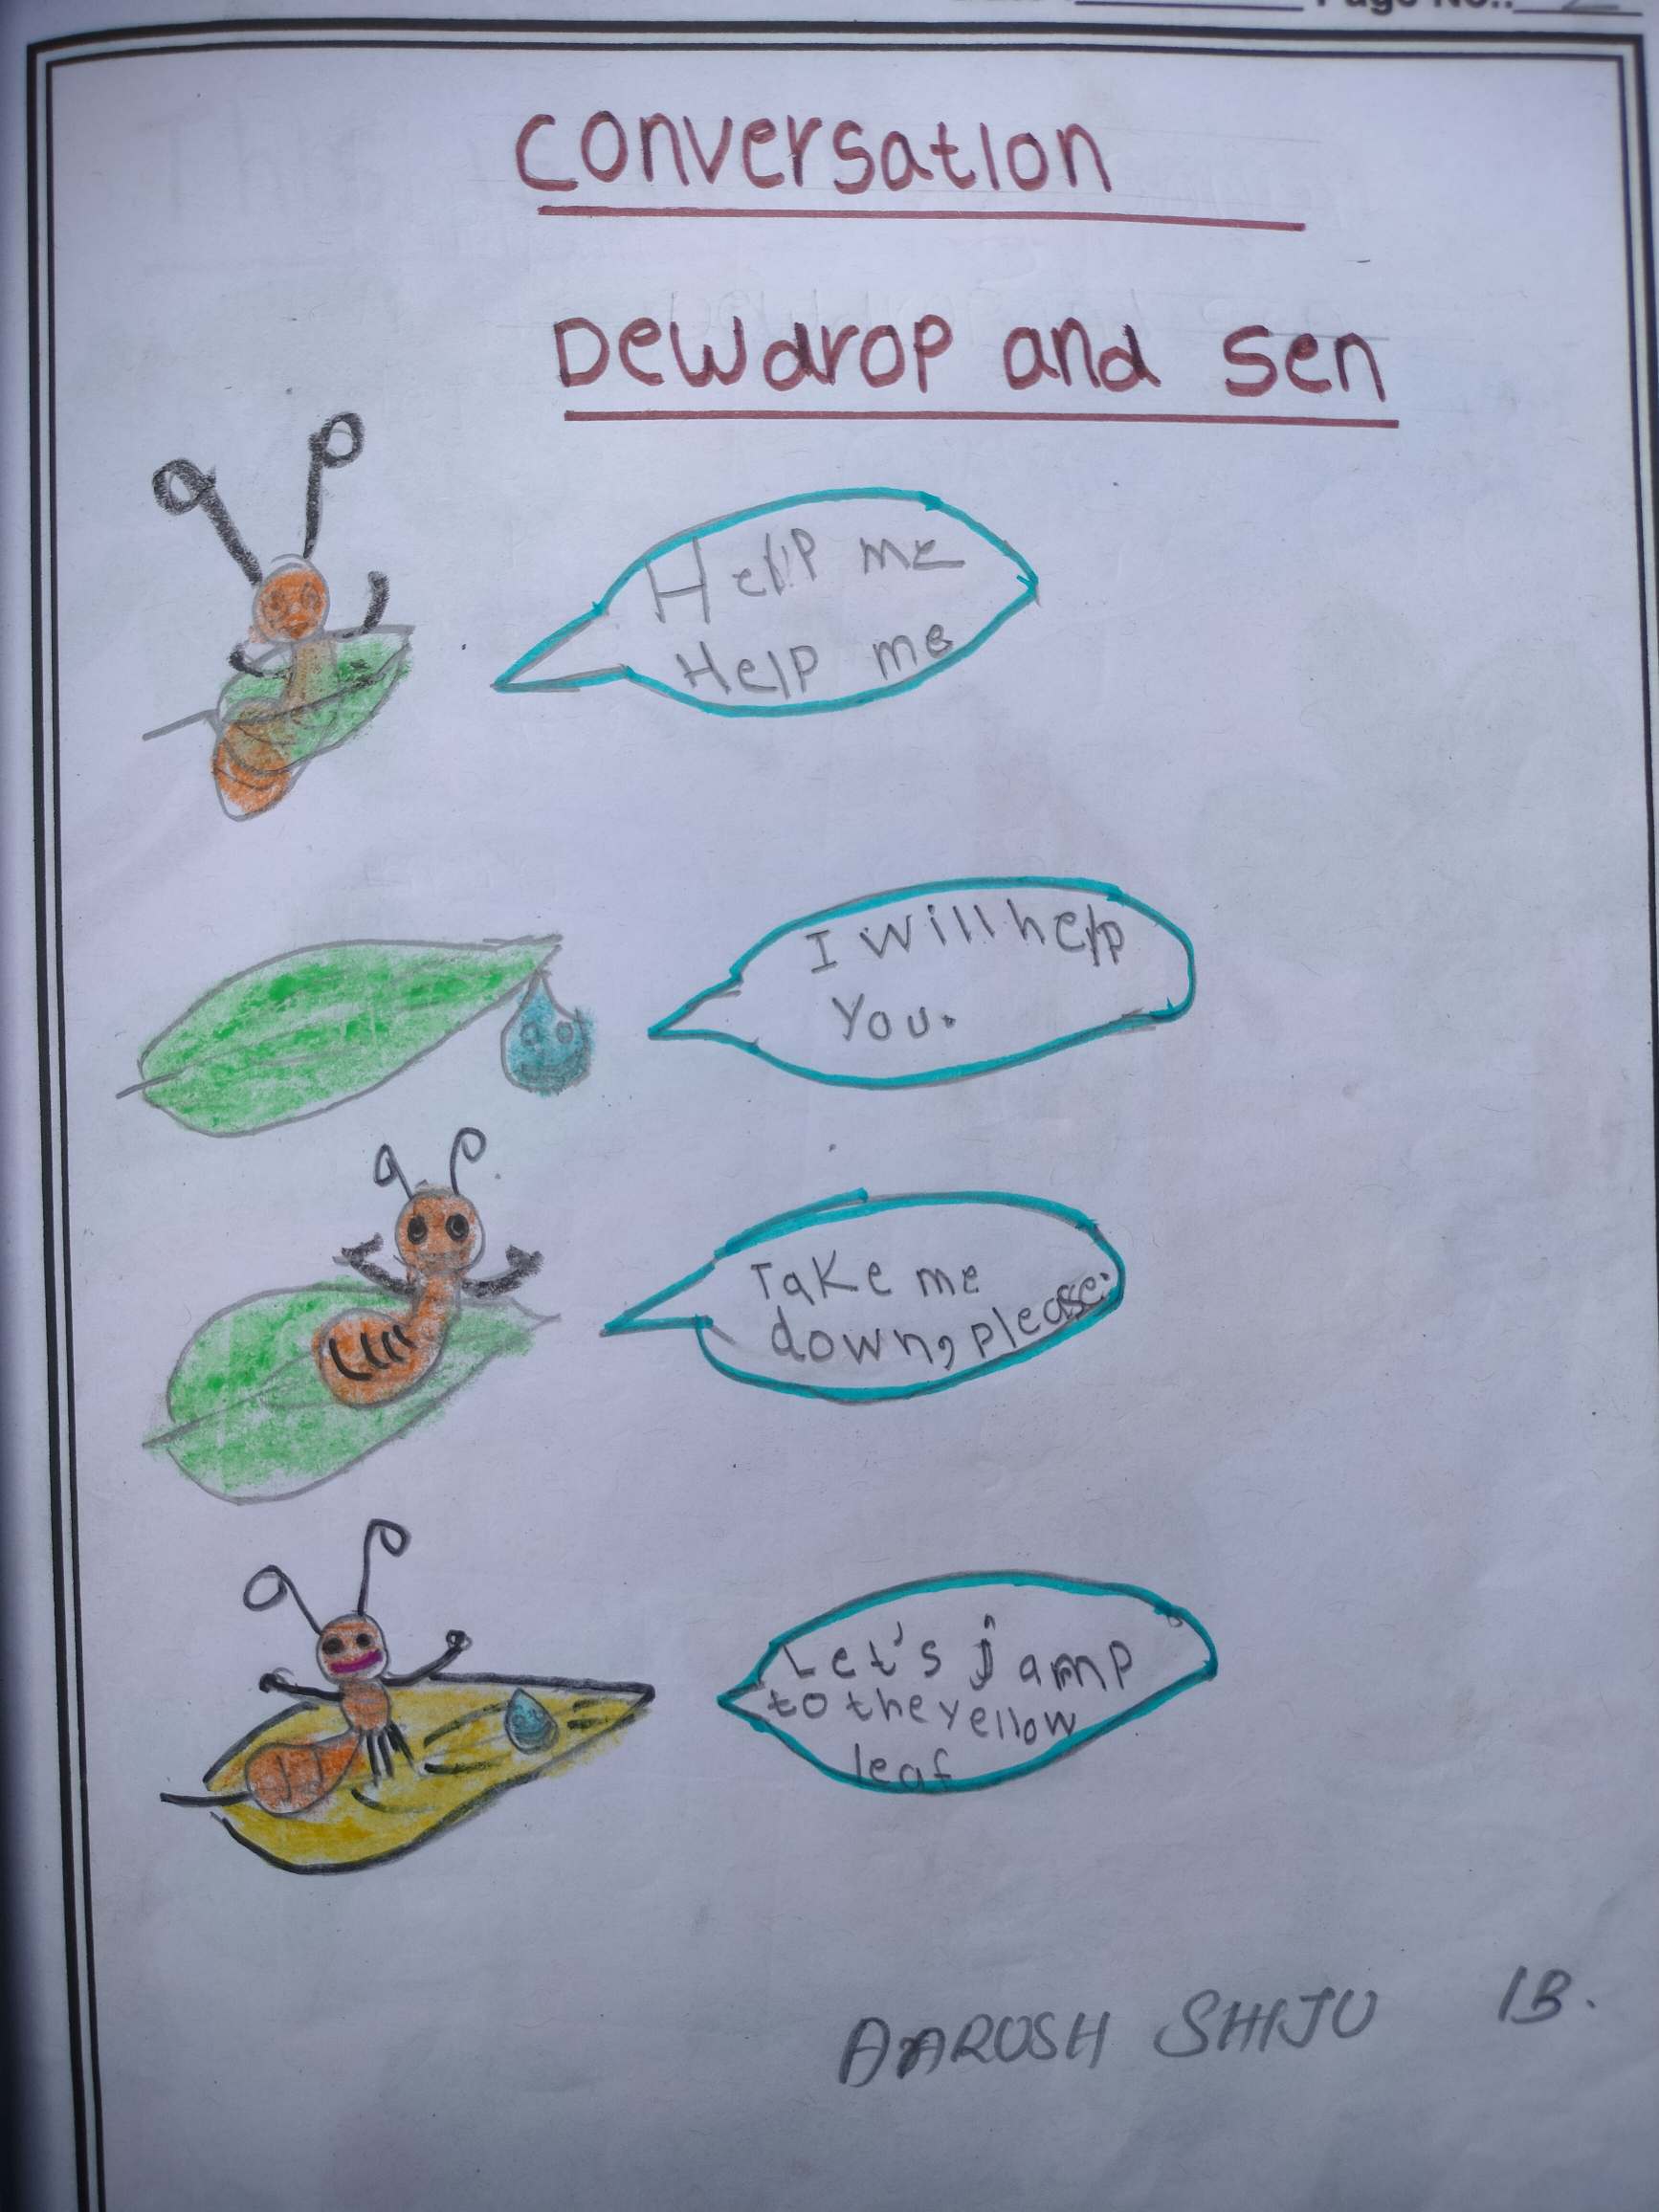 Page No.: 2
conversation
Dewdrop and sen
Help me
Help me
I will help
You.
Take me
down, please.
Let's jamp
to the yellow
leaf
AAROSH SHIJU 1B.